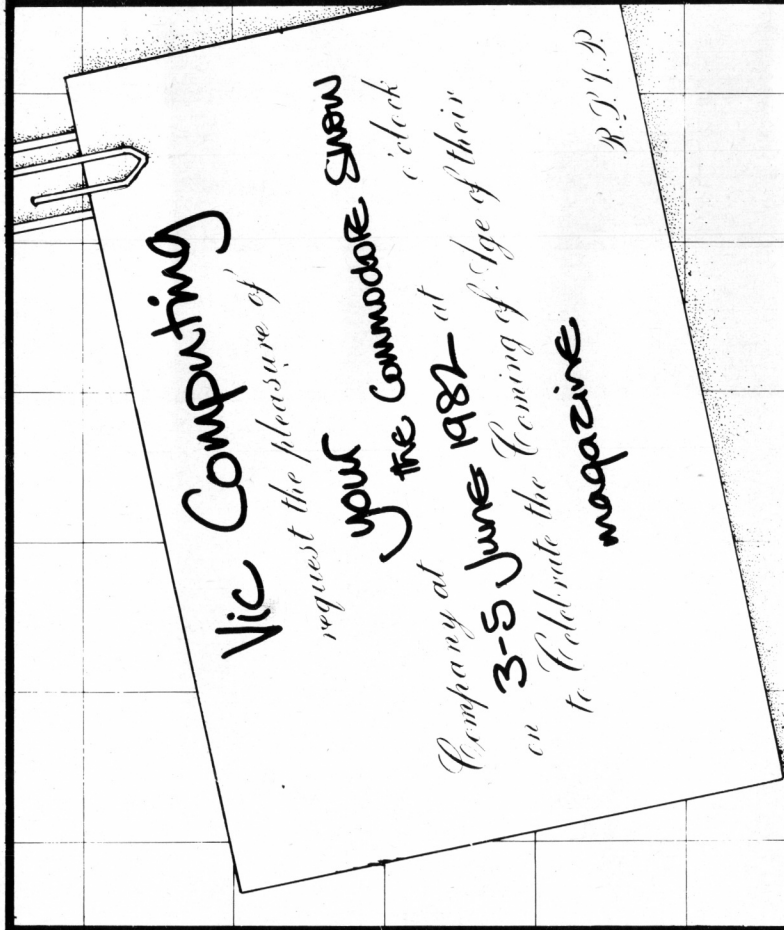 Vic Computing
request the pleasure of
your
Company at the Commodore Show
on 3-5 June 1982 at o'clock
to Celebrate the Coming of Age of their
magazine
R.S.V.P.